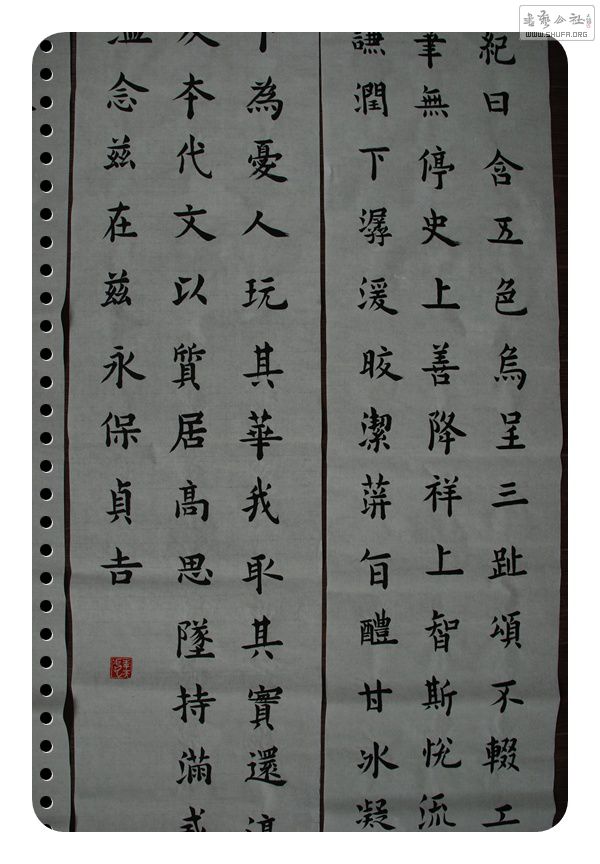 紀曰含五色烏呈三趾頌不輟工
筆無停史上善降祥上智斯悅流
謙潤下潺湲晈潔蓱旨醴甘冰凝
下為憂人玩其華我取其實還淳
反本代文以質居高思墜持滿戒
溢念茲在茲永保貞吉
書藝公社
WWW.SHUFA.ORG